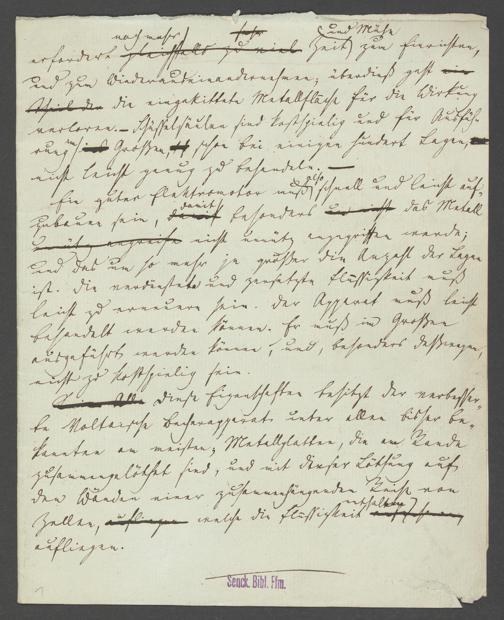 noch mehr und Mühe
erfordert gleichfalls zu viel Zeit zum Einrichten,
und zum Wiederauseinandernehmen; überdieß geht ein
Theil der die eingekittete Metallfläche für die Wirkung
verloren. – Schüsselsäulen sind kostspielig und für Ausfüh-
rung im Großen, schon bei einigen hundert Lagen,
nicht leicht genug zu behandeln. –
Ein guter Elektromotor muß also schnell und leicht auf-
zubauen sein, damit besonders und nicht das Metall
unnütz angreife nicht unnütz angegriffen werde;
und das um so mehr je größer die Anzahl der Lagen
ist. Die verdienstete und zersetzte Flüssigkeit muß
leicht zu erneuern sein. Der Apparat muß leicht
behandelt werden können. Er muß im Großen
ausgeführt werden können, und, besonders deßwegen,
nicht zu kostspielig sein.
Diese Eigenschaften besitzt der verbesser-
te Voltaische Becherapparat unter allen bisher be-
kannten am meisten; Metallplatten, die am Rande
zusammengelöthet sind, und mit dieser Löthung auf
den Wänden einer zusammenhängenden Reihe von
Zellen, aufliegen welche die Flüssigkeit enthalten
aufliegen.
Senck. Bibl. Ffm.
1